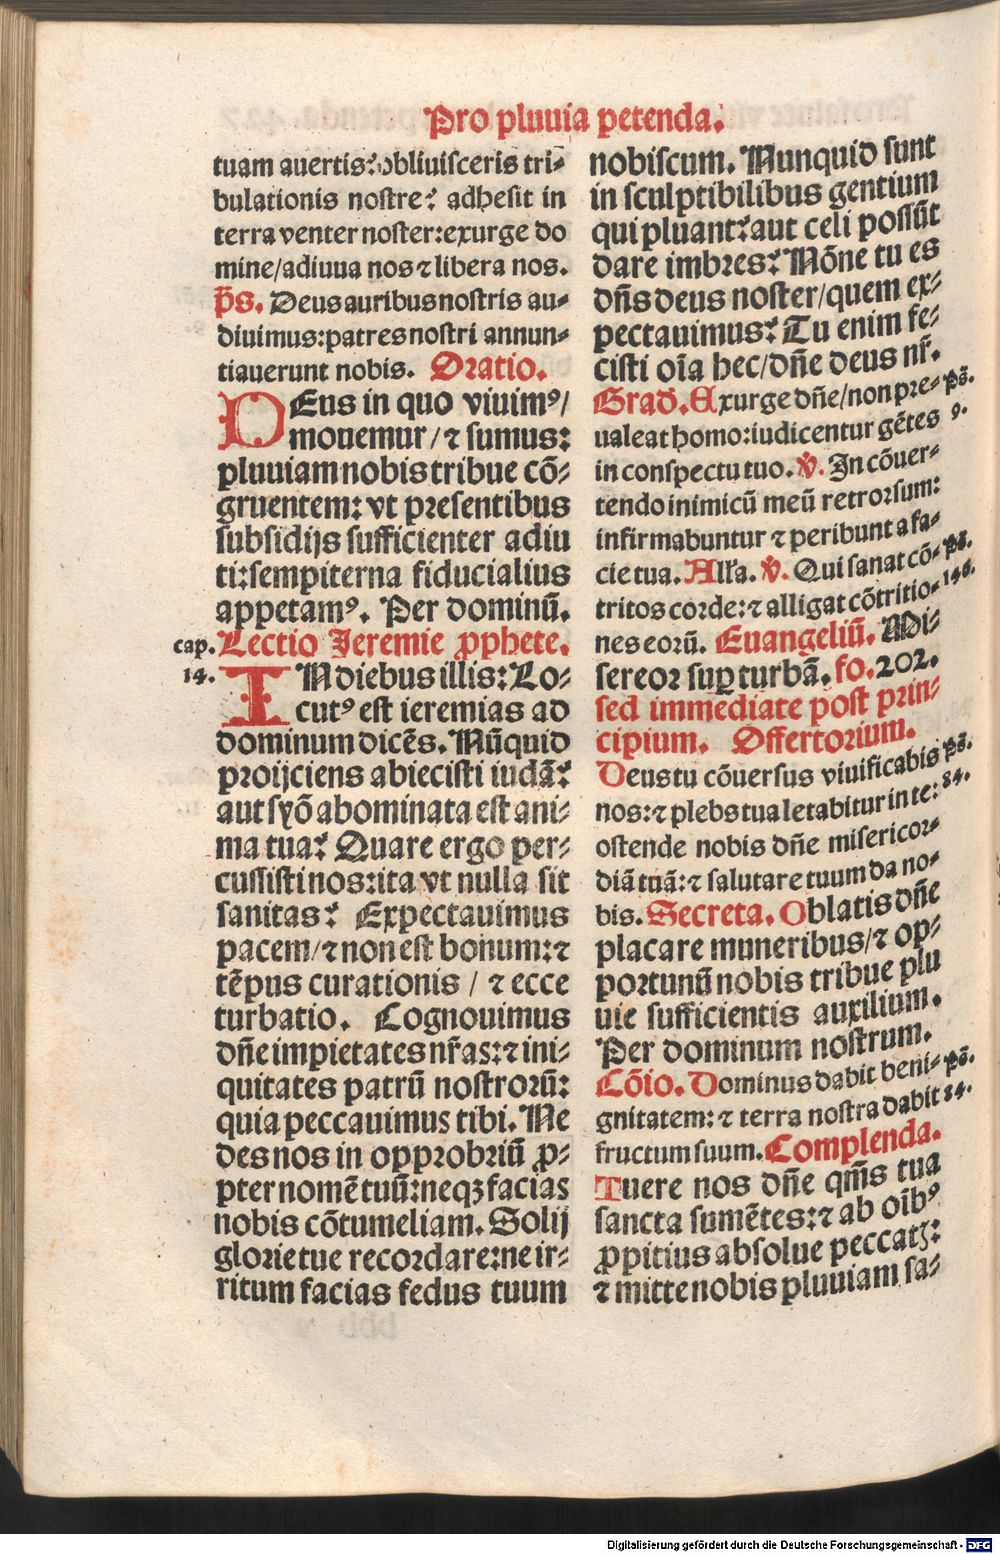 Pro pluuia petenda.
tuam auertis? obliuisceris tri⸗
bulationis nostre? adhesit in
terra venter noster: exurge do
mine/adiuua nos ⁊ libera nos.
p̄s. Deus auribus nostris au⸗
diuimus: patres nostri annun⸗
tiauerunt nobis. Oratio.
DEus in quo viuimꝰ/
mouemur/⁊ sumus:
pluuiam nobis tribue cō⸗
gruentem: vt presentibus
subsidijs sufficienter adiu
ti: sempiterna fiducialius
appetamꝰ. Per dominū.
cap. Lectio Jeremie ꝓphete.
14. IN diebus illis: Lo⸗
cutꝰ est ieremias ad
dominum dicēs. Nūquid
proijciens abiecisti iudā?
aut syō abominata est ani⸗
ma tua? Quare ergo per⸗
cussisti nos: ita vt nulla sit
sanitas? Expectauimus
pacem/⁊ non est bonum: ⁊
tēpus curationis / ⁊ ecce
turbatio. Cognouimus
dn̄e impietates nr̄as: ⁊ ini⸗
quitates patrū nostrorū:
quia peccauimus tibi. Ne
des nos in opprobriū ꝓ⸗
pter nomē tuū: neqꝫ facias
nobis cōtumeliam. Solij
glorie tue recordare: ne ir⸗
ritum facias fedus tuum
nobiscum. Nunquid sunt
in sculptibilibus gentium
qui pluant? aut celi possūt
dare imbres? Nōne tu es
dn̄s deus noster/quem ex⸗
pectauimus? Tu enim fe⸗
cisti oīa hec/dn̄e deus nr̄.
Grad. Exurge dn̄e/non pre⸗ ps̄.
ualeat homo: iudicentur gētes 9.
in conspectu tuo. ℣. In cōuer⸗
tendo inimicū meū retrorsum:
infirmabuntur ⁊ peribunt a fa⸗
cie tua. Allʼa. ℣. Qui sanat cō⸗ ps̄.
tritos corde: ⁊ alligat cōtritio⸗ 146.
nes eorū. Euangeliū. Mi⸗
sereor suꝑ turbā. fo. 202.
sed immediate post prin⸗
cipium. Offertorium.
Deus tu cōuersus viuificabis ps̄.
nos: ⁊ plebs tua letabitur in te: 84.
ostende nobis dn̄e misericor⸗
diā tuā: ⁊ salutare tuum da no⸗
bis. Secreta. Oblatis dn̄e
placare muneribus/⁊ op⸗
portunū nobis tribue plu
uie sufficientis auxilium.
Per dominum nostrum.
Cōio. Dominus dabit beni⸗ ps̄.
gnitatem: ⁊ terra nostra dabit 84.
fructum suum. Complenda.
Tuere nos dn̄e qm̄s tua
sancta sumētes: ⁊ ab oībꝰ
ꝓpitius absolue peccatꝭ:
⁊ mitte nobis pluuiam sa⸗
Digitalisierung gefördert durch die Deutsche Forschungsgemeinschaft - DFG